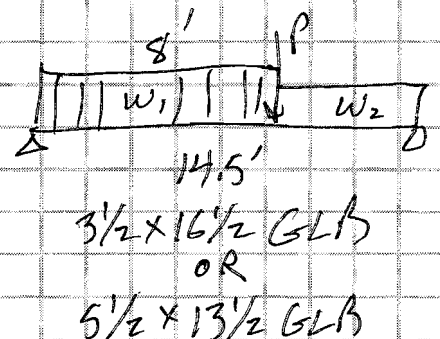 8'
P
W1
W2
14.5'
3 1/2 x 16 1/2 GLB
OR
5 1/2 x 13 1/2 GLB